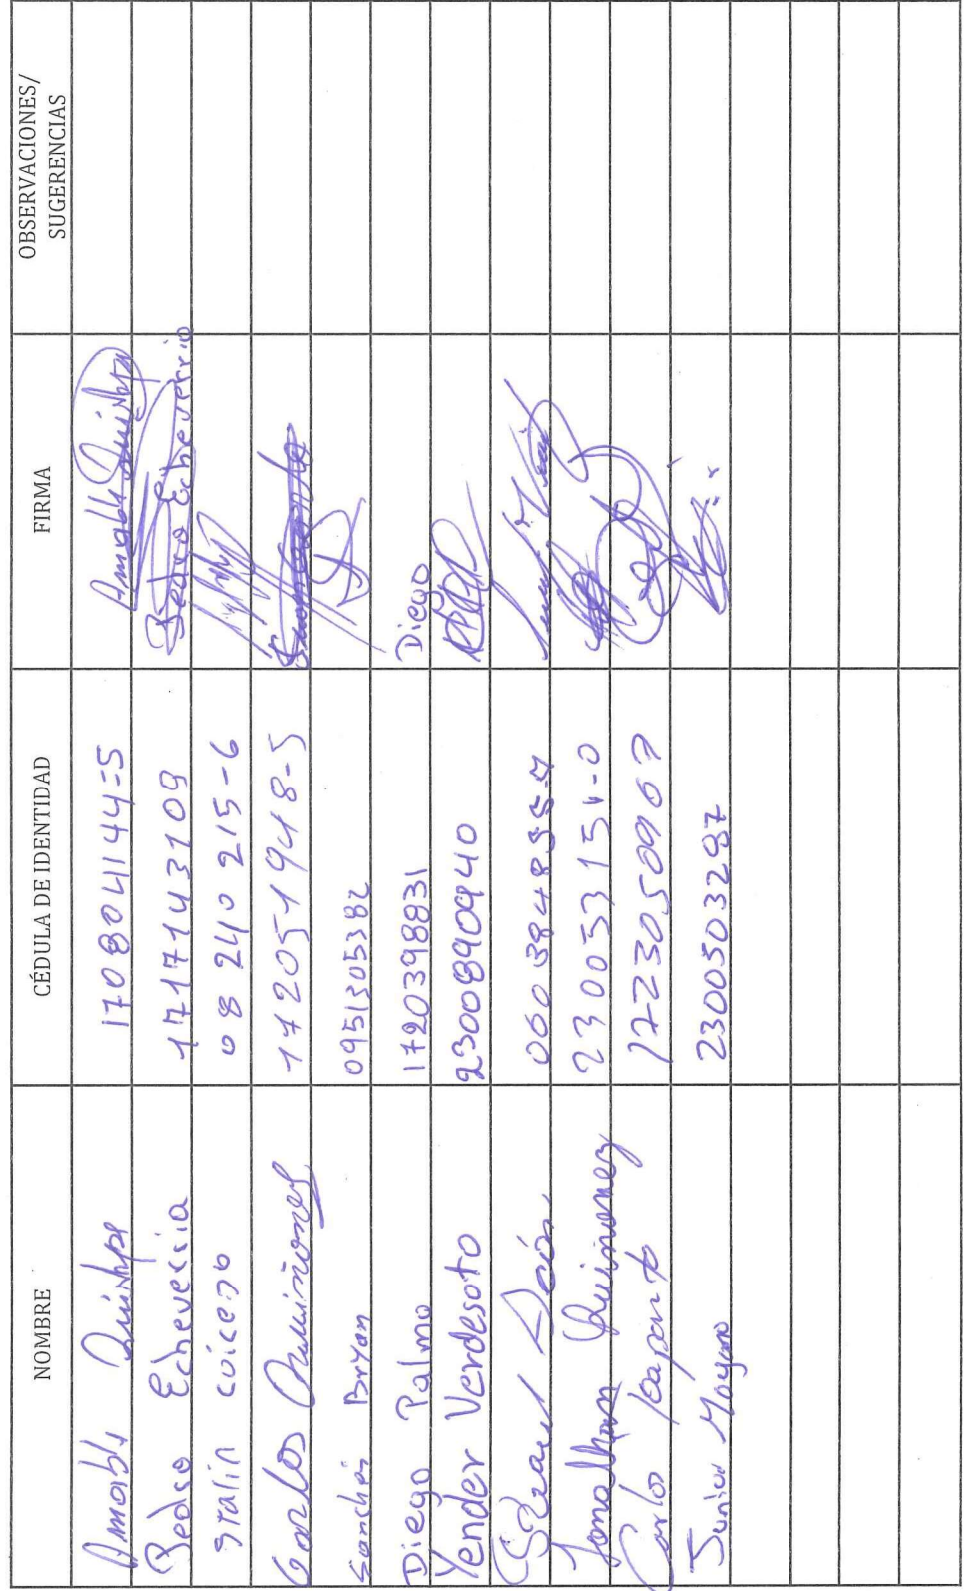 NOMBRE CÉDULA DE IDENTIDAD FIRMA OBSERVACIONES/
SUGERENCIAS
Amable Quishpe 170804144-5 Amable Quishpe
Pedro Echeverria 1717143109 Pedro Echeverria
Stalin Caicedo 08 240 215-6
Carlos Quiñonez 172051948-5
Sanchez Bryan 0951305382
Diego Palma 1720398831 Diego
Yender Verdesoto 2300890940
060384895-7
Jonathan Quinonez 230053151-0
Carlos 1723050967
Junior Moyano 2300503297